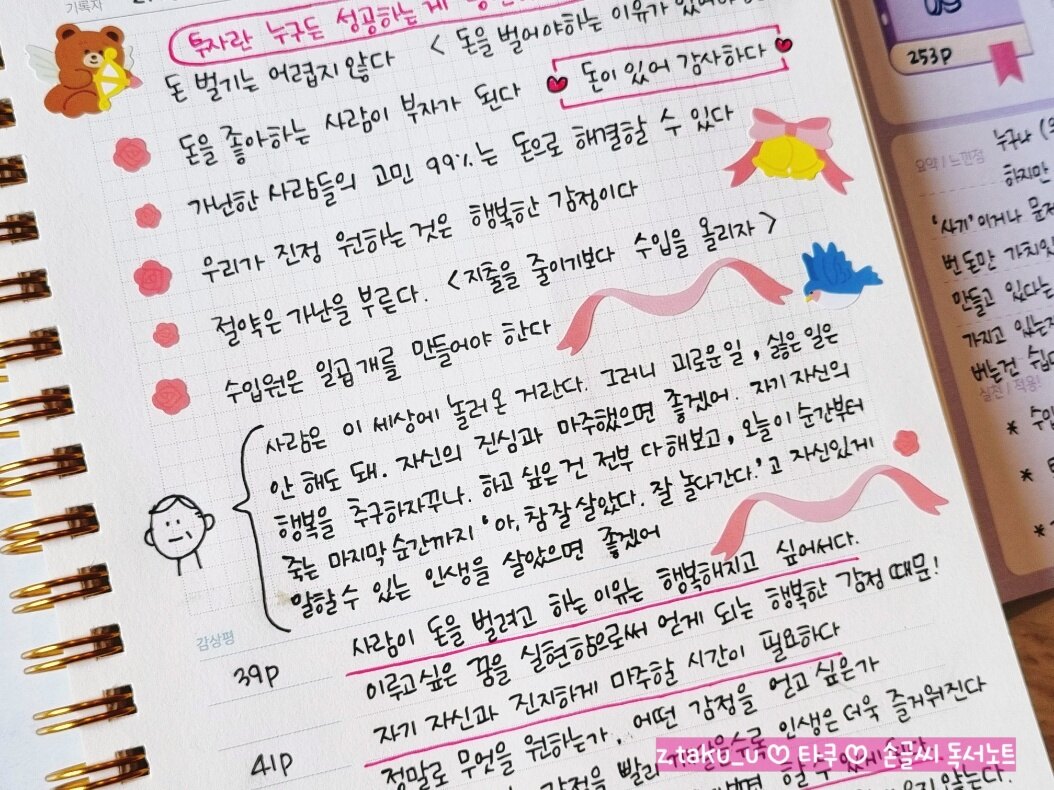 기록자
투자란 누구든 성공하는 게
돈 벌기는 어렵지 않다 < 돈을 벌어야하는 이유가
돈을 좋아하는 사람이 부자가 된다 돈이 있어 감사하다
가난한 사람들의 고민 99%는 돈으로 해결할 수 있다
우리가 진정 원하는 것은 행복한 감정이다
절약은 가난을 부른다. <지출을 줄이기보다 수입을 올리자>
수입원은 일곱개를 만들어야 한다
사람은 이 세상에 놀러 온 거란다. 그러니 괴로운 일, 싫은 일은
안 해도 돼. 자신의 진심과 마주했으면 좋겠어. 자기 자신의
행복을 추구하자꾸나. 하고 싶은 건 전부 다 해보고, 오늘이 순간부터
죽는 마지막 순간까지 '아, 참 잘 살았다. 잘 놀다간다.'고 자신있게
말할 수 있는 인생을 살았으면 좋겠어
감상평
39p 사람이 돈을 벌려고 하는 이유는 행복해지고 싶어서다.
이루고싶은 꿈을 실현함으로써 얻게 되는 행복한 감정 때문!
자기 자신과 진지하게 마주할 시간이 필요하다
41p 정말로 무엇을 원하는가, 어떤 감정을 얻고 싶은가
감정을 빨리 인생은 더욱 즐거워진다
z.taku_u♡ 타쿠♡ 손글씨 독서노트
253p
요약 / 느낀점
누구나
하지만
'사기'이거나
번 돈만
만들고 있다는
가지고 있는
버는건
실천 / 적용!
*
*
*
*